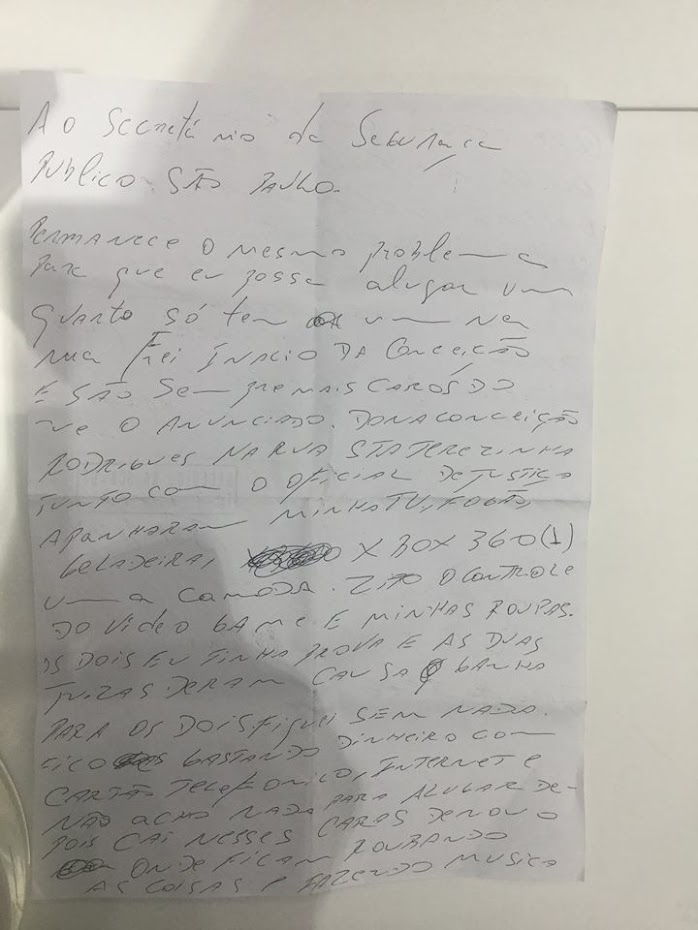 Ao Secretário da Segurança
Publico São Paulo.
PERMANECE O MESMO Problema
Para que eu possa alugar um
Quarto só tem um na
rua Frei INACIO DA CONCEIÇÃO
E SÃO Sempre MAIS CAROS DO
que O ANUNCIADO. DONA CONCEIÇÃO
RODRIGUES NA RUA STA TEREZINHA
JUNTO COM O OFICIAL DE JUSTIÇA
APANHARAM MINHA TV, FOGÃO,
GELADEIRA, X BOX 360 (1)
uma COMODA. O CONTROLE
DO VIDEO GAME E MINHAS ROUPAS.
OS DOIS EU TINHA PROVA E AS DUAS
JUIZAS DERAM CAUSA GANHA
PARA OS DOIS FIQUEI SEM NADA.
FICO GASTANDO DINHEIRO COM
CARTÃO TELEFONICO, INTERNET e
NÃO ACHO NADA PARA ALUGAR DE-
POIS CAI NESSES CARAS DENOVO
ONDE FICAM ROUBANDO
AS COISAS e FAZENDO MUSICA